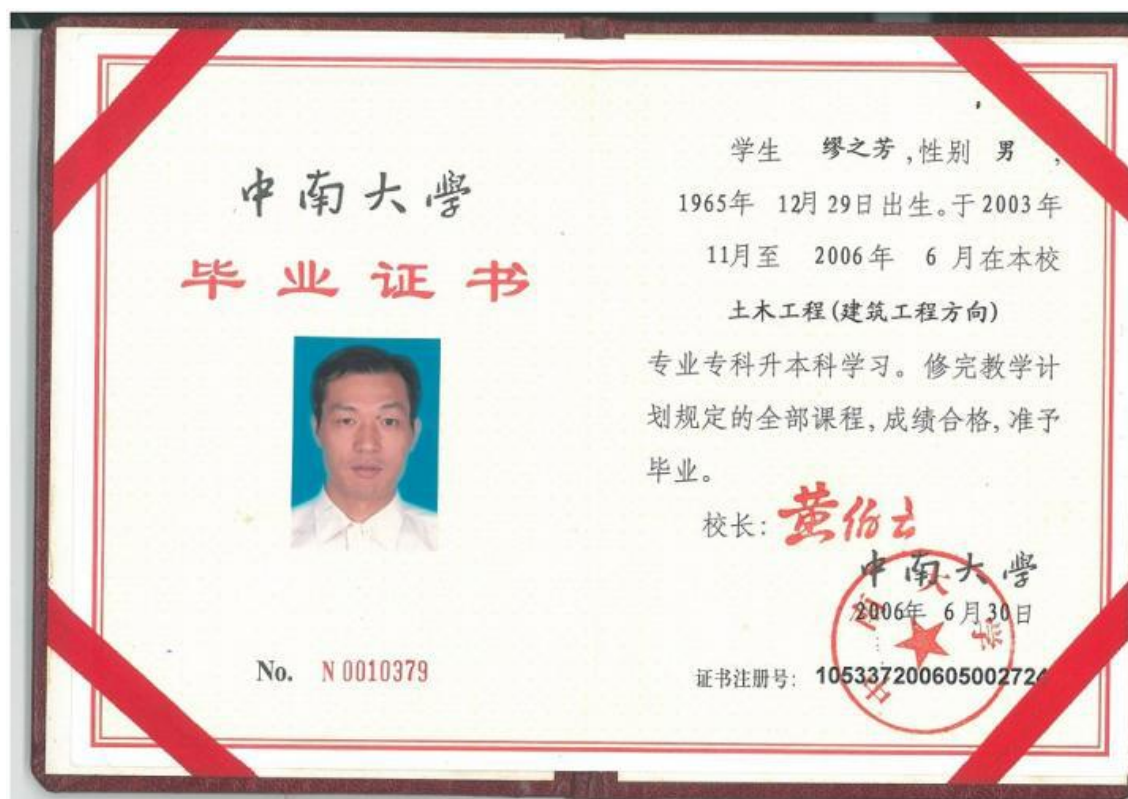 中南大學
毕业证书
No. N 0010379
学生 缪之芳,性别 男,
1965年 12月29日出生。于2003年
11月至 2006年 6月在本校
土木工程(建筑工程方向)
专业专科升本科学习。修完教学计
划规定的全部课程,成绩合格,准予
毕业。
校长:黄伯云
中南大學
2006年 6月30日
中南大学
证书注册号:105337200605002724